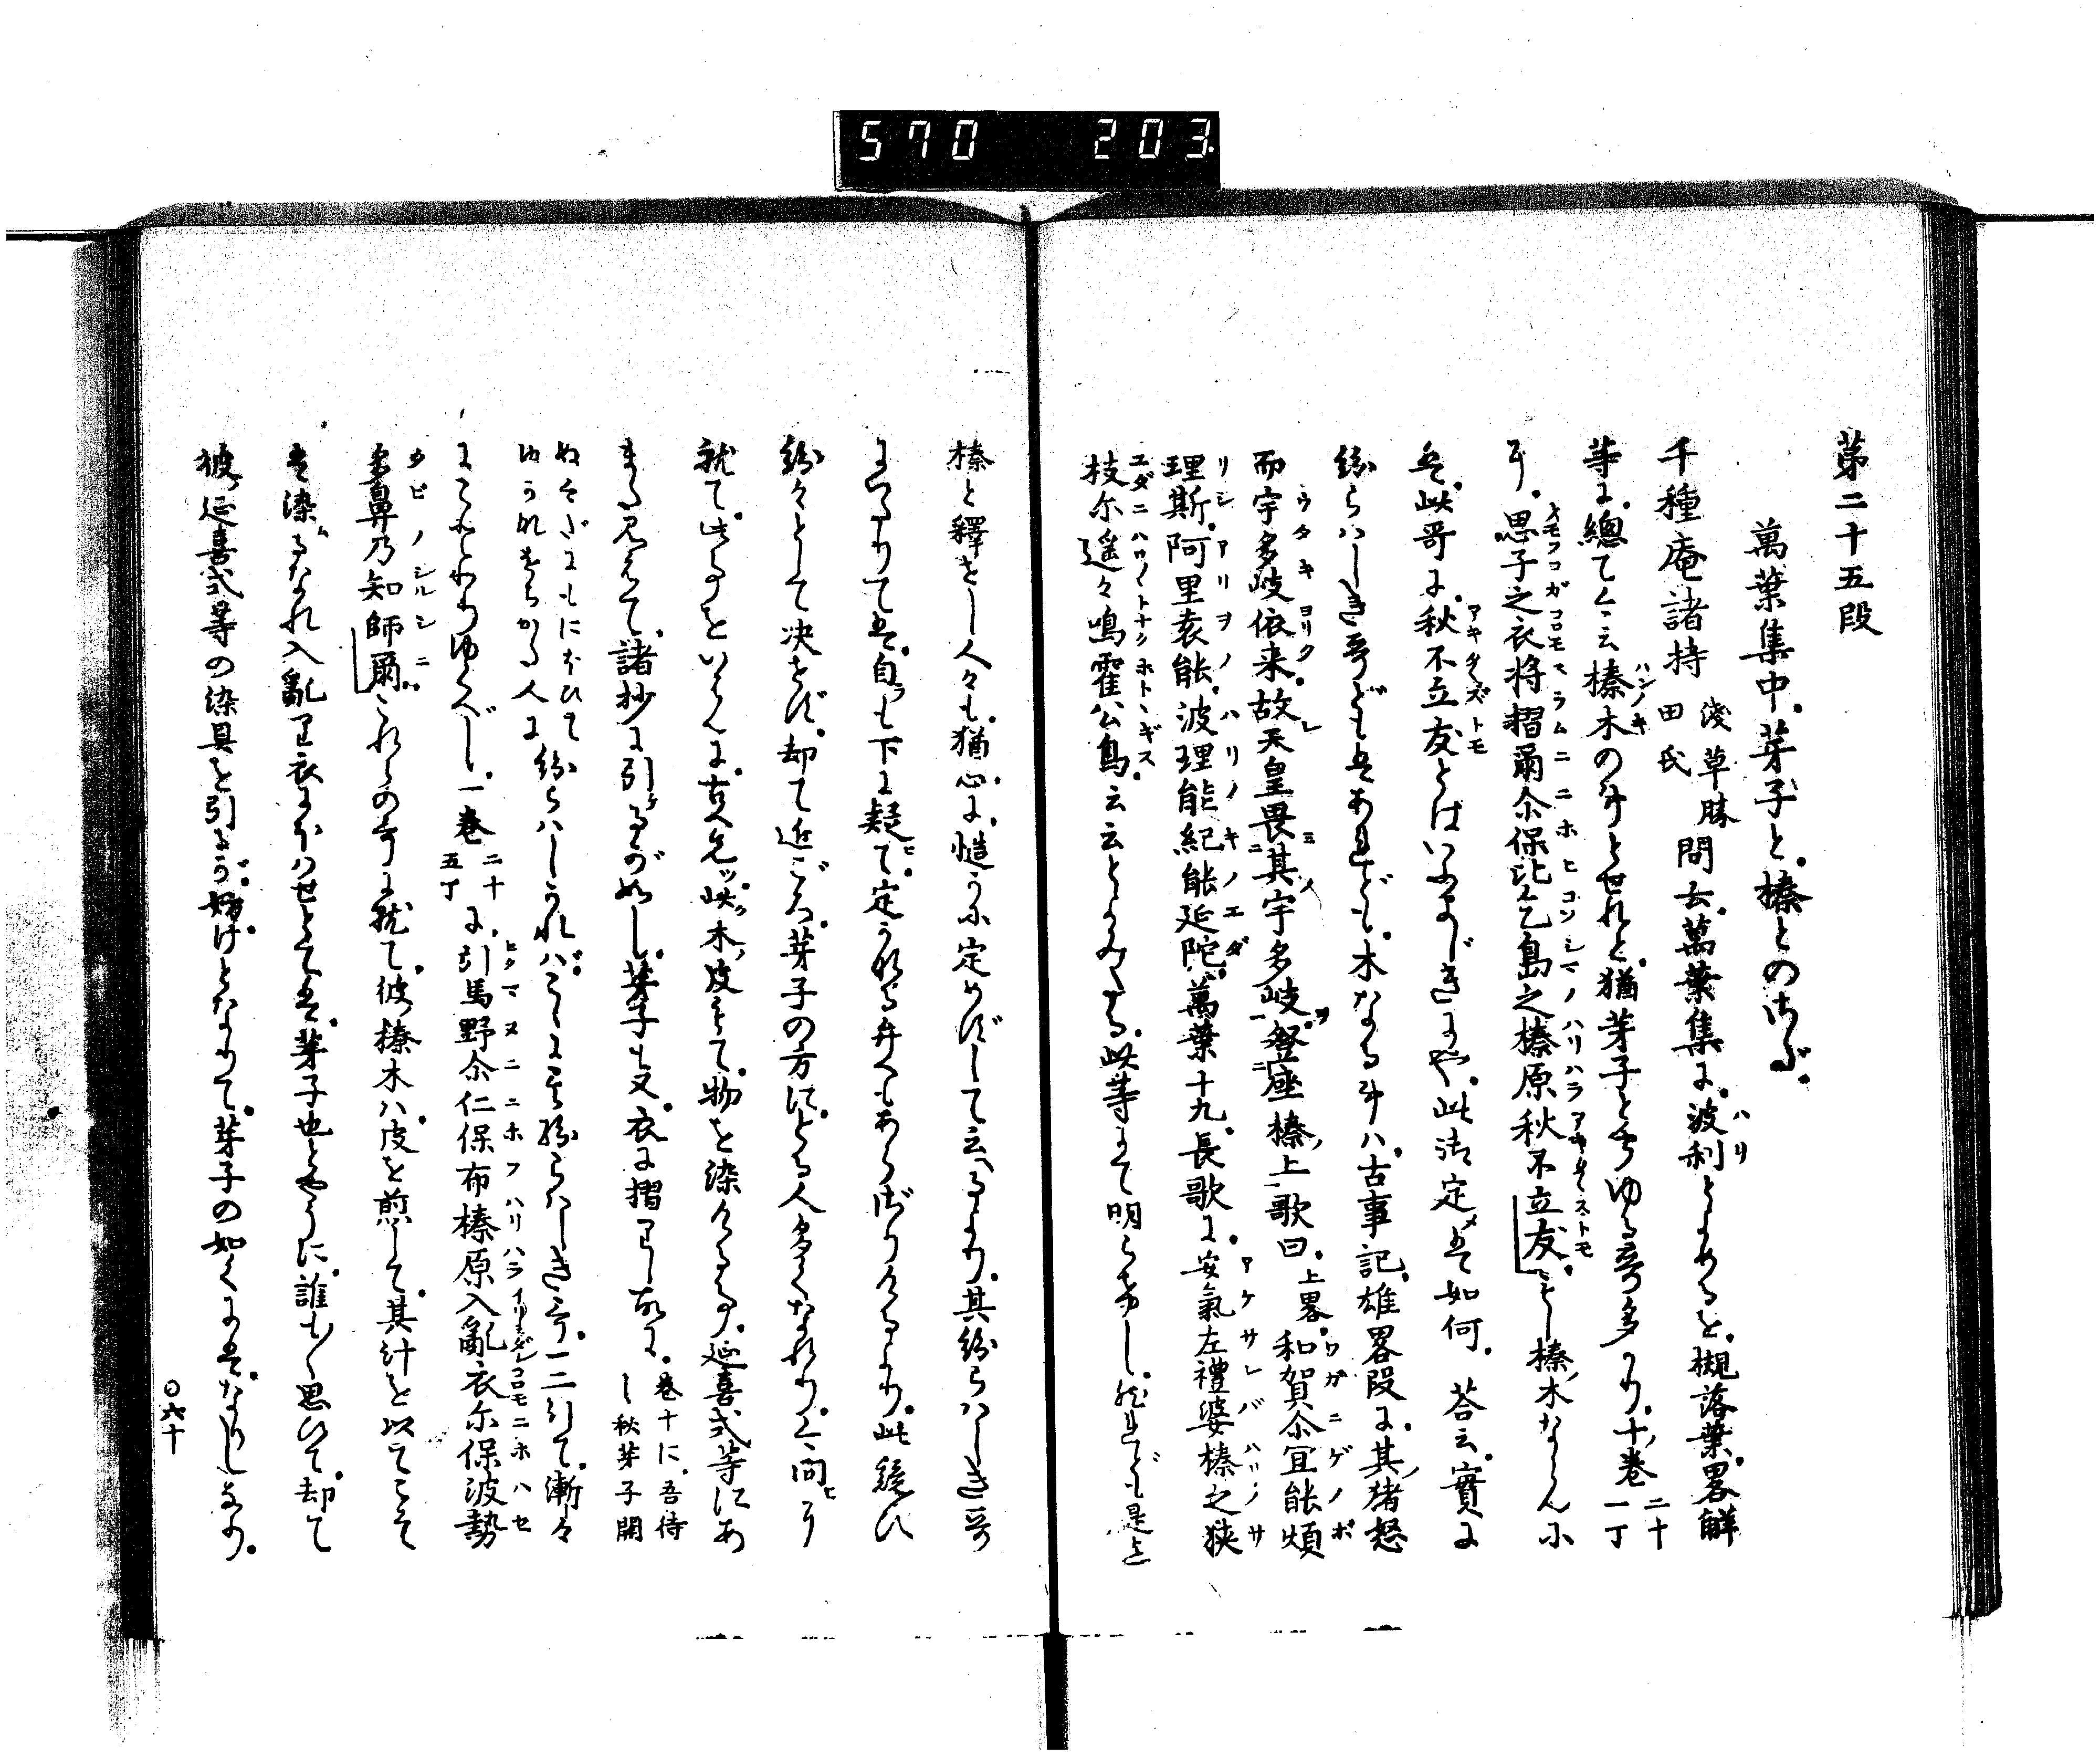 570 203
第二十五段
萬葉集中。芽子と。榛とのさだ。
千種庵諸持 淺草勝田氏 問云。萬葉集に。波利とよめるを。槻落葉。畧解
等に。總てミ云榛木の事とせれと。猶芽子と聞ゆる哥多かり。十ノ巻二十一丁
に。思子之衣将摺爾尓保比乞島之榛原秋不立友。こもし榛ノ木ならんに
は。此哥に。秋不立友とはいふまじきにや。此御定めは如何。荅云。實に
紛らハしき哥どもはあれども。木なる事ハ。古事記。雄畧段に。其ノ猪怒
而宇多岐依来。故天皇畏其宇多岐。登座榛ノ上歌曰。上畧。和賀尓宜能煩
理斯。阿里袁能。波理能紀能延陀。萬葉十九。長歌に。安氣左禮婆榛之狭
枝尓遥々鳴霍公鳥。云云とよみたる。此等にて明らけし。然れども是と
榛と釋せし人々も。猶心に慥かに定めずして云へるなり。其紛らハしき哥
にいたりては。自らも下に疑ひて。定かなる弁へもあらざりけるなり。此疑ひ
紛々として決せず。却て近ごろ。芽子の方にとる人多くなれり。今問ヒに
就て。此事をいはんに。古へ先ッ此ノ木ノ皮もて。物を染ける事。延喜式等にあ
また見えて。諸抄に引るが如し。芽子も又。衣に摺りし故に。巻十に。吾待し秋芽子開
ぬ今だにもにほひてゆかな越方人に 紛らハしければ。こゝに其紛らハしき哥。一二引て。漸々
にことわりゆくべし。一巻二十五丁に。引馬野尓仁保布榛原入亂衣尓保波勢
多鼻乃知師爾。これらの哥に就て。彼ノ榛木ハ。皮を煎じて。其汁を以てこそ
は染るなれ入亂り衣にほハせとては。芽子也とやうに。誰も〳〵思ひて。却て
彼ノ延喜式等の染具を引るが妨げとなりて。芽子の如くには。なりしなり。
〇六十